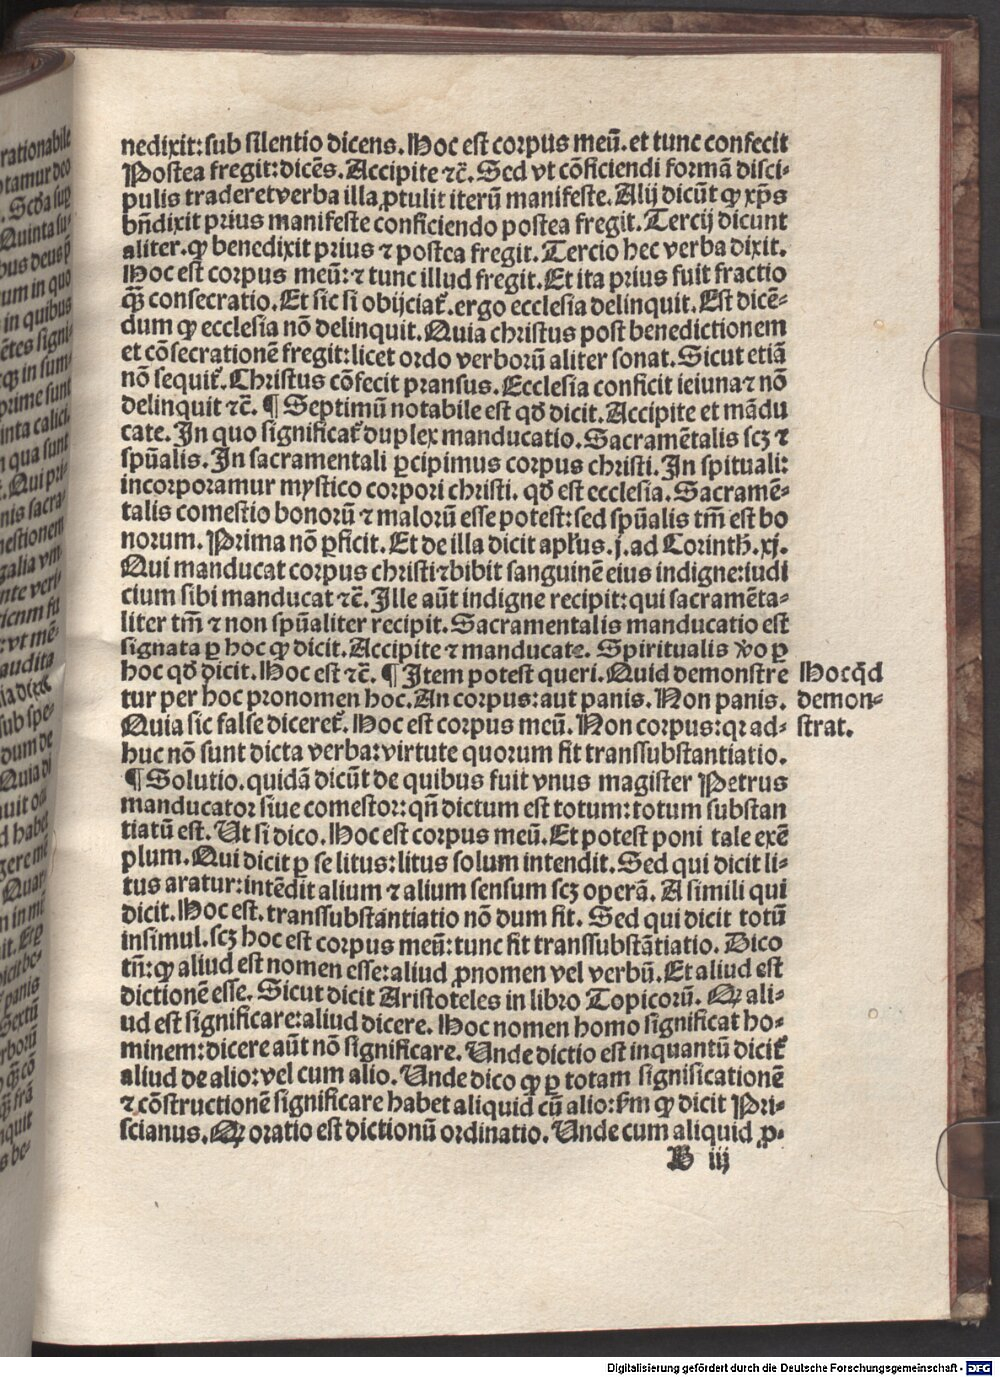 nedixit: sub silentio dicens. Hoc est corpus meū. et tunc confecit
Postea fregit: dicēs. Accipite ⁊c̄. Sed vt cōficiendi formā disci-
pulis traderet verba illa ꝓtulit iterū manifeste. Alij dicūt ꝙ xp̄s
bn̄dixit prius manifeste conficiendo postea fregit. Tercij dicunt
aliter. ꝙ benedixit prius ⁊ postea fregit. Tercio hec verba dixit.
Hoc est corpus meū: ⁊ tunc illud fregit. Et ita prius fuit fractio
qꝫ̄ consecratio. Et sic si obijciat᷑. ergo ecclesia delinquit. Est dicē-
dum ꝙ ecclesia nō delinquit. Quia christus post benedictionem
et cōsecrationē fregit: licet ordo verborū aliter sonat. Sicut etiā
nō sequit᷑. Christus cōfecit pransus. Ecclesia conficit ieiuna ⁊ nō
delinquit ⁊c̄. ¶ Septimū notabile est qd̄ dicit. Accipite et mādu
cate. In quo significat᷑ duplex manducatio. Sacramētalis scꝫ ⁊
spūalis. In sacramentali ꝑcipimus corpus christi. In spirituali:
incorporamur mystico corpori christi. qd̄ est ecclesia. Sacramē-
talis comestio bonorū ⁊ malorū esse potest: sed spūalis tm̄ est bo
norum. Prima nō ꝓficit. Et de illa dicit apl̄us. j. ad Corinth̄. xj.
Qui manducat corpus christi ⁊ bibit sanguinē eius indigne: iudi
cium sibi manducat ⁊c̄. Ille aūt indigne recipit: qui sacramēta-
liter tm̄ ⁊ non spūaliter recipit. Sacramentalis manducatio est
signata ꝑ hoc ꝙ dicit. Accipite ⁊ manducate. Spiritualis v̆o ꝑ
hoc qd̄ dicit. Hoc est ⁊c̄. ¶ Item potest queri. Quid demonstre
tur per hoc pronomen hoc. An corpus: aut panis. Non panis.
Quia sic false diceret᷑. Hoc est corpus meū. Non corpus: qꝛ ad-
huc nō sunt dicta verba: virtute quorum fit transsubstantiatio.
Hoc qd̄
demon-
strat.
¶ Solutio. quidā dicūt de quibus fuit vnus magister Petrus
manducator siue comestor: qn̄ dictum est totum: totum substan
tiatū est. Ut si dico. Hoc est corpus meū. Et potest poni tale exē
plum. Qui dicit ꝑ se litus: litus solum intendit. Sed qui dicit li-
tus aratur: intēdit alium ⁊ alium sensum scꝫ operā. A simili qui
dicit. Hoc est. transsubstantiatio nō dum fit. Sed qui dicit totū
insimul. scꝫ hoc est corpus meū: tunc fit transsubstātiatio. Dico
tn̄: ꝙ aliud est nomen esse: aliud ꝓnomen vel verbū. Et aliud est
dictionē esse. Sicut dicit Aristoteles in libro Topicorū. Qꝛ ali-
ud est significare: aliud dicere. Hoc nomen homo significat ho-
minem: dicere aūt nō significare. Unde dictio est inquantū dicit᷑
aliud de alio: vel cum alio. Unde dico ꝙ ꝑ totam significationē
⁊ cōstructionē significare habet aliquid cū alio: ẜm ꝙ dicit Pri-
scianus. Qꝛ oratio est dictionū ordinatio. Unde cum aliquid ꝓ-
B iij
Digitalisierung gefördert durch die Deutsche Forschungsgemeinschaft - DFG